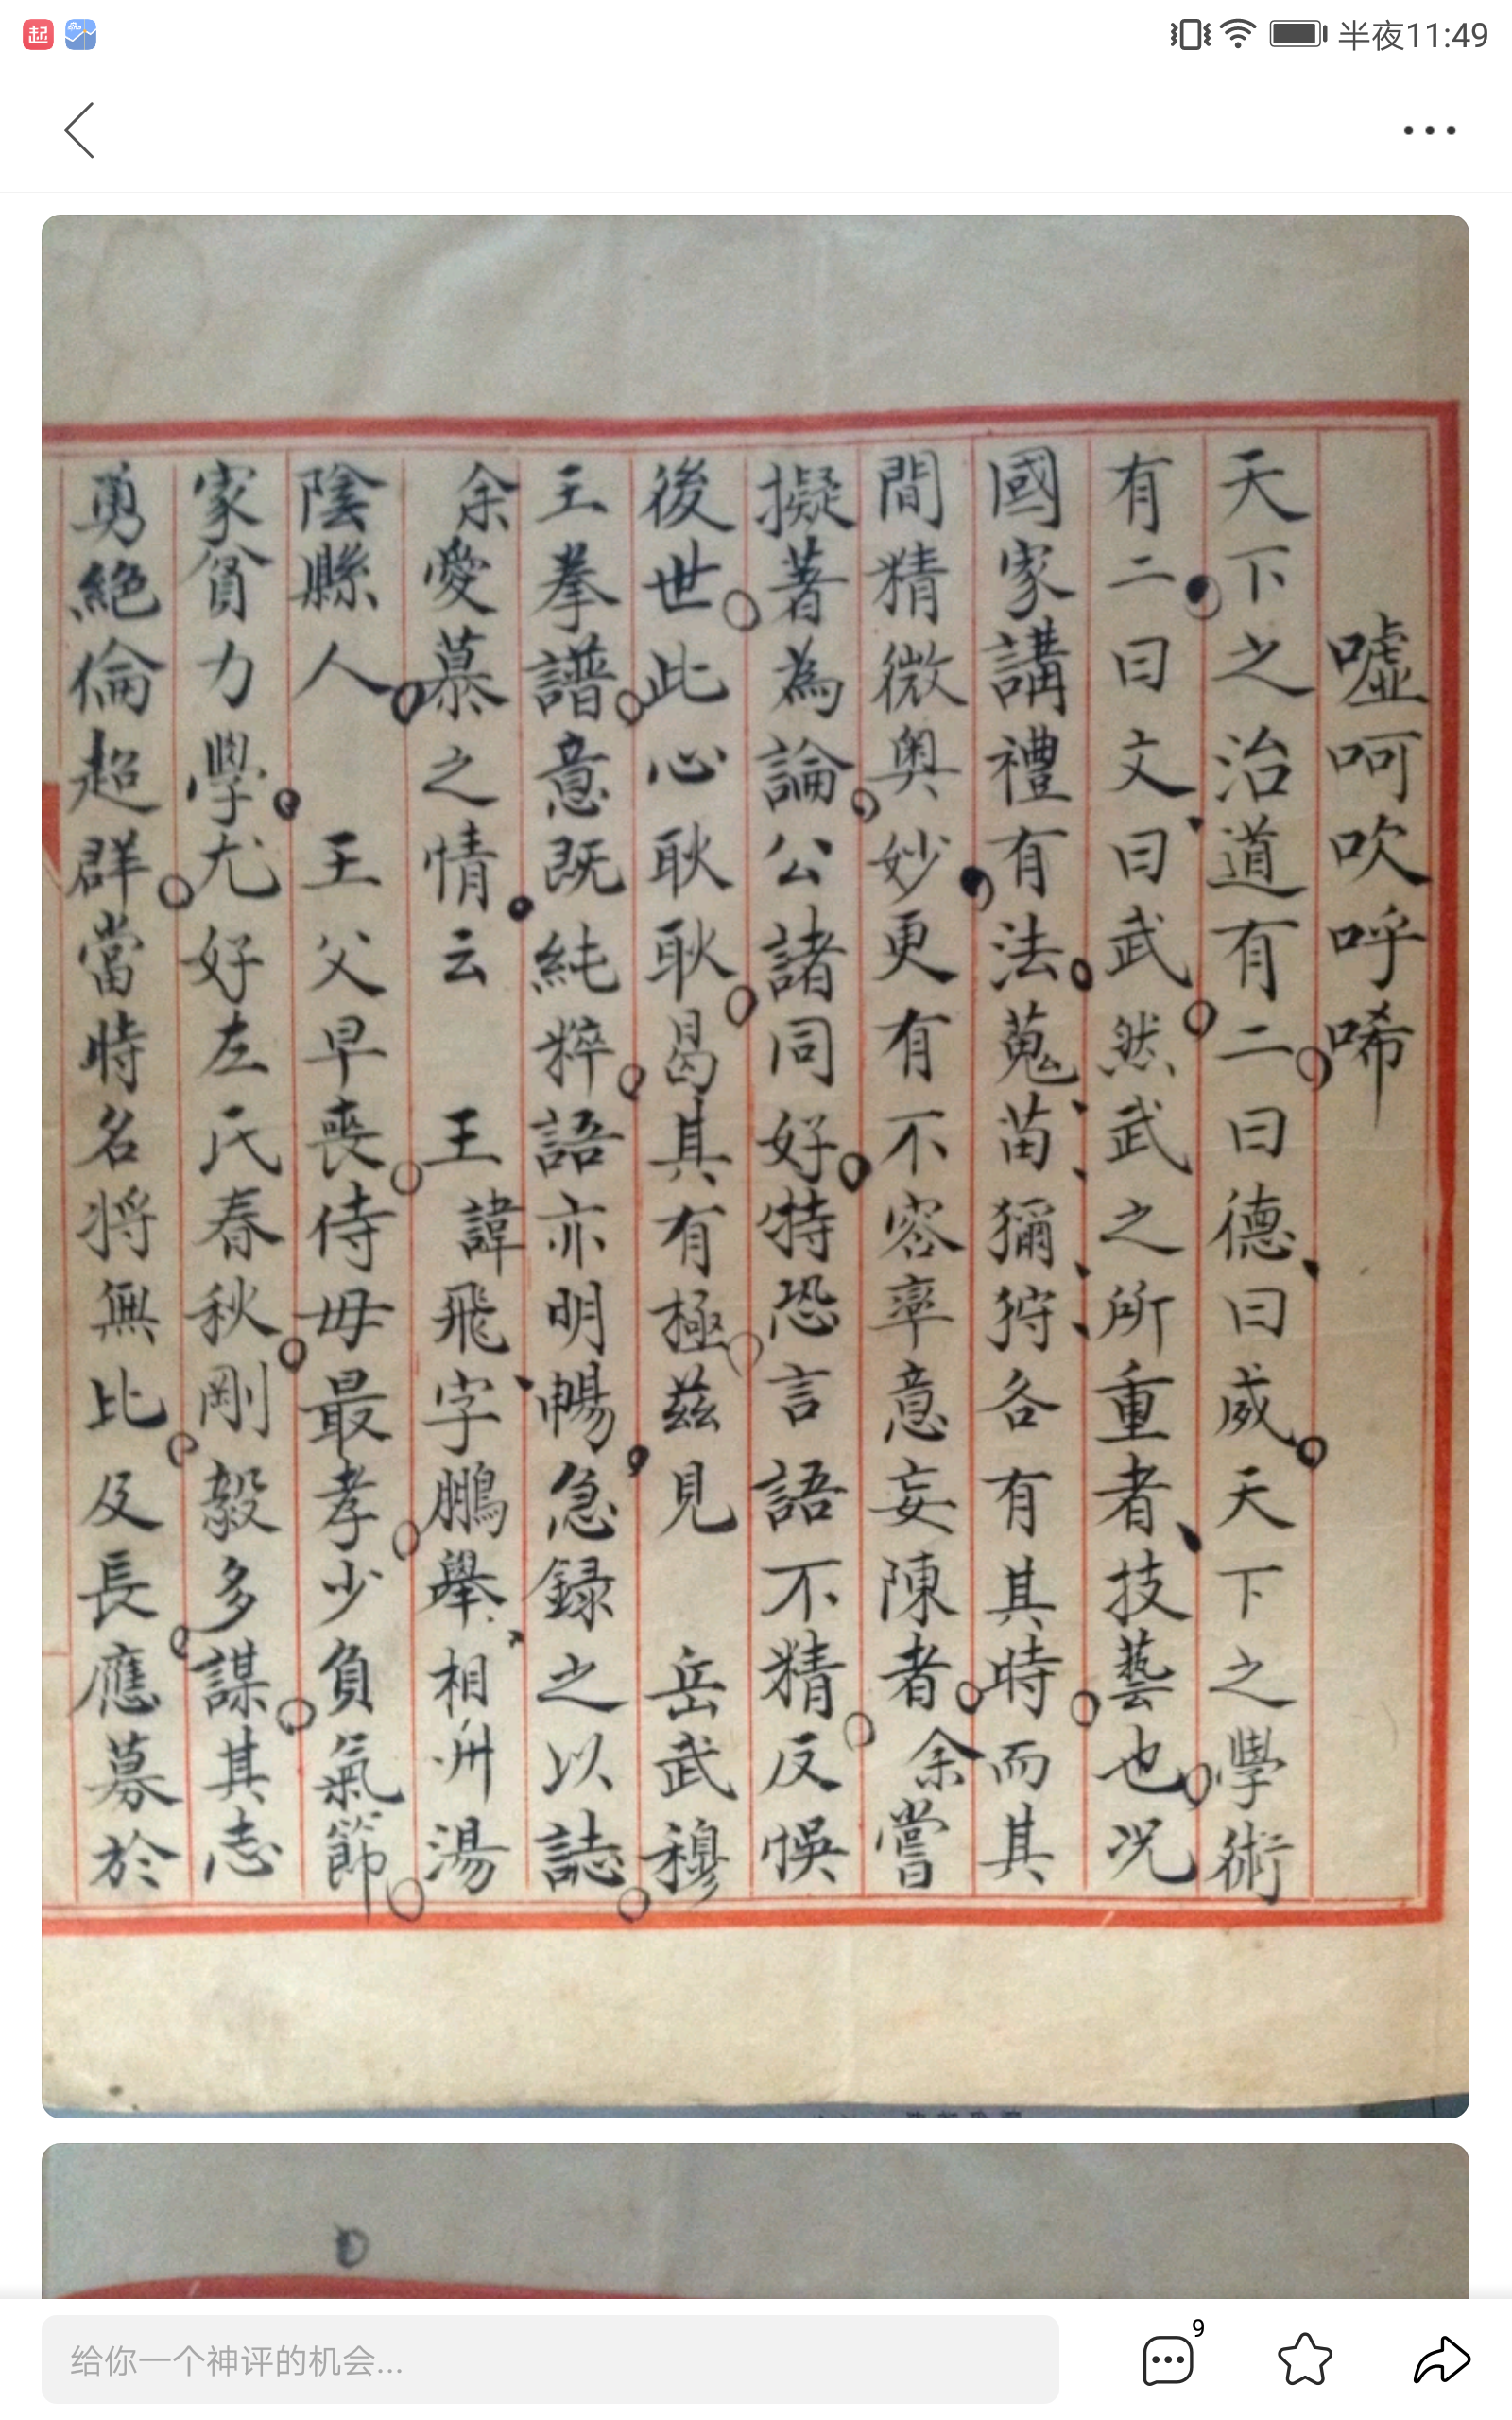 起
半夜11:49
噓呵吹呼唏
天下之治道有二曰德曰威天下之學術
有二曰文曰武然武之所重者技藝也况
國家講禮有法蒐苗獮狩各有其時而其
間精微奥妙更有不容率意妄陳者余嘗
擬著為論公諸同好特恐言語不精反悞
後世此心耿耿曷其有極兹見 岳武穆
王拳譜意既純粹語亦明暢急録之以誌
余愛慕之情云 王諱飛字鵬舉相州湯
陰縣人 王父早喪侍毋最孝少負氣節
家貧力學尤好左氏春秋剛毅多謀其志
勇絶倫超群當時名將無比及長應募於
给你一个神评的机会...
9